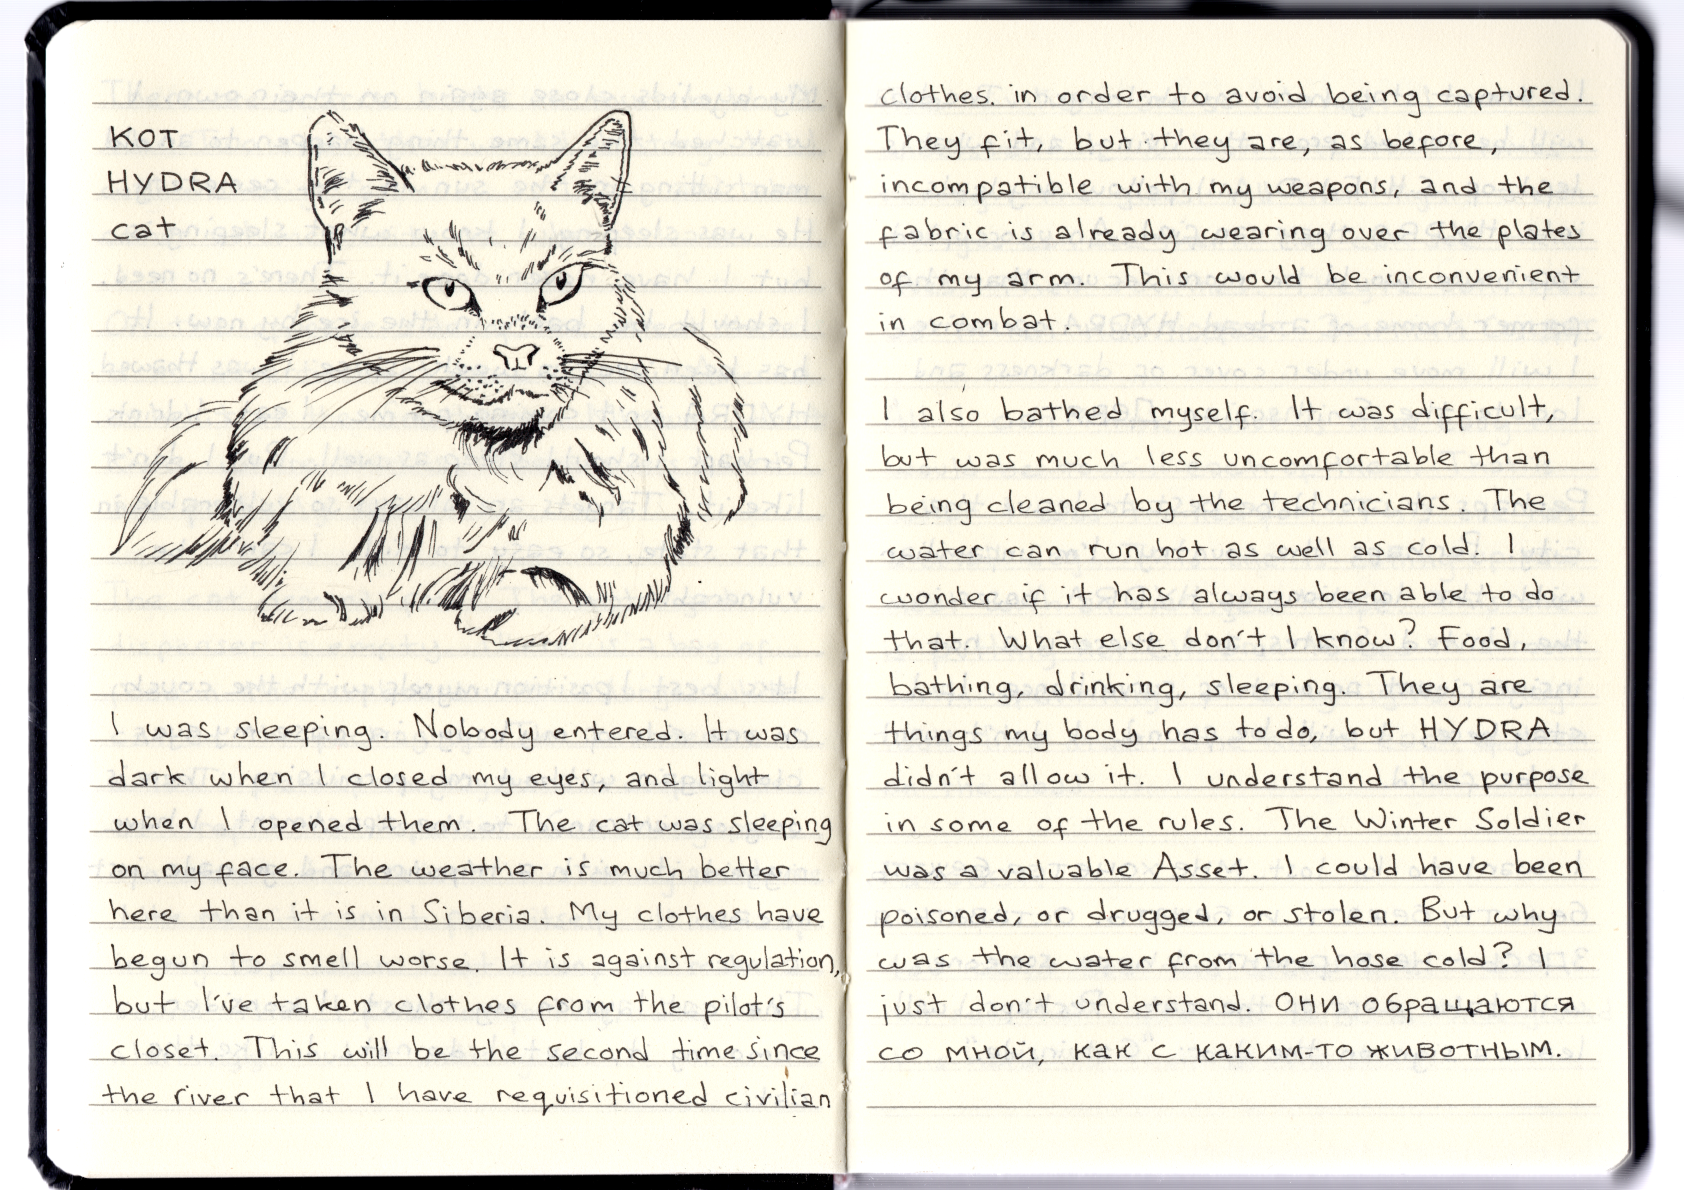 КОТ
HYDRA
cat
I was sleeping. Nobody entered. It was
dark when I closed my eyes, and light
when I opened them. The cat was sleeping
on my face. The weather is much better
here than it is in Siberia. My clothes have
begun to smell worse. It is against regulation,
but I've taken clothes from the pilot's
closet. This will be the second time since
the river that I have requisitioned civilian
clothes. in order to avoid being captured.
They fit, but they are, as before,
incompatible with my weapons, and the
fabric is already wearing over the plates
of my arm. This would be inconvenient
in combat.
I also bathed myself. It was difficult,
but was much less uncomfortable than
being cleaned by the technicians. The
water can run hot as well as cold. I
wonder if it has always been able to do
that. What else don't I know? Food,
bathing, drinking, sleeping. They are
things my body has to do, but HYDRA
didn't allow it. I understand the purpose
in some of the rules. The Winter Soldier
was a valuable Asset. I could have been
poisoned, or drugged, or stolen. But why
was the water from the hose cold? I
just don't understand. Они обращаются
со мной, как с каким-то животным.